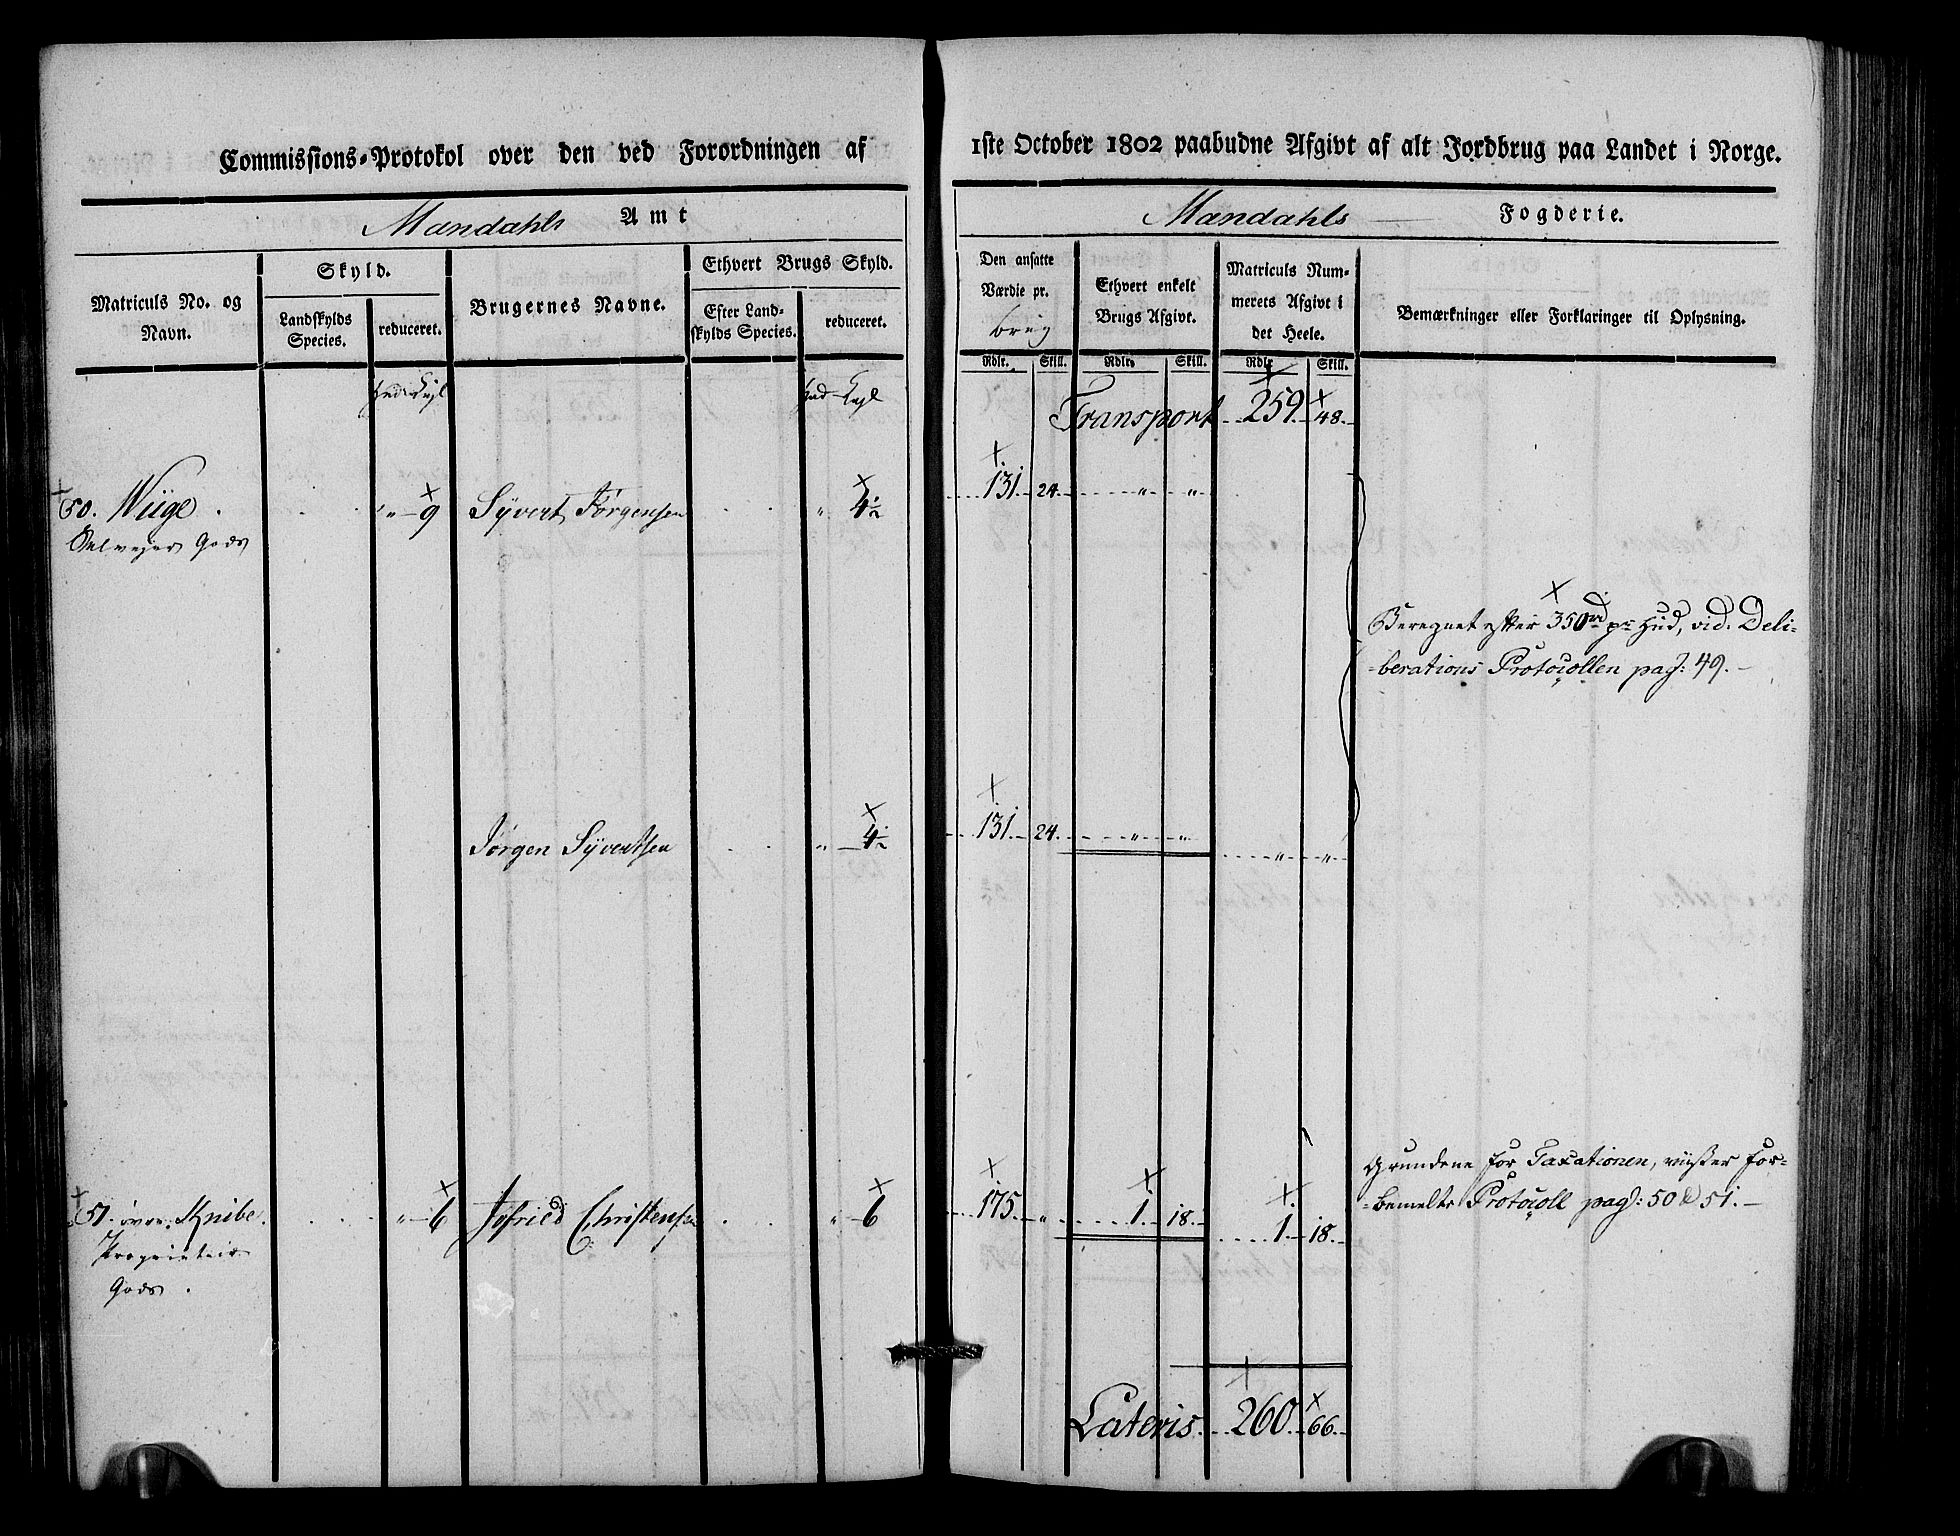 Commissions-Protokol over den ved Forordningen af
1ste October 1802 paabudne Afgivt af alt Jordbrug paa Landet i Norge.
Mandahls Amt
Mandahls Fogderie.
Matriculs No. og Navn.
Skyld.
Landskylds Species.
reduceret.
Brugernes Navne.
Ethvert Brugs Skyld.
Efter Landskylds Species.
reduceret.
Den ansatte Værdie pr.
brug
Ethvert enkelt Brugs Afgivt.
Matriculs Nummerets Afgivt i det Heele.
Bemærkninger eller Forklaringer til Oplysning.
Rdlr. Skill. Rdlr. Skill. Rdlr. Skill.
Hud
Hud
Transport 259. 48.
50. Wiige. „ 9 Syvert Jørgensen „ 4½ 131. 24. „ „
Selveyer Gods
Beregnet efter 350rd pr Hud, vid. Deli-
berations Protocollen pag: 49.
Jørgen Syvertsen „ 4½ 131. 24. „ „ „ „
Grundene for Taxationen, viiser for-
bemelte Protocoll pag: 50 & 51.
51. øvre Knibe. „ 6 Christensen „ 6 175. „ 1. 18. 1. 18.
Proprietair
Gods.
Lateris 260. 66.